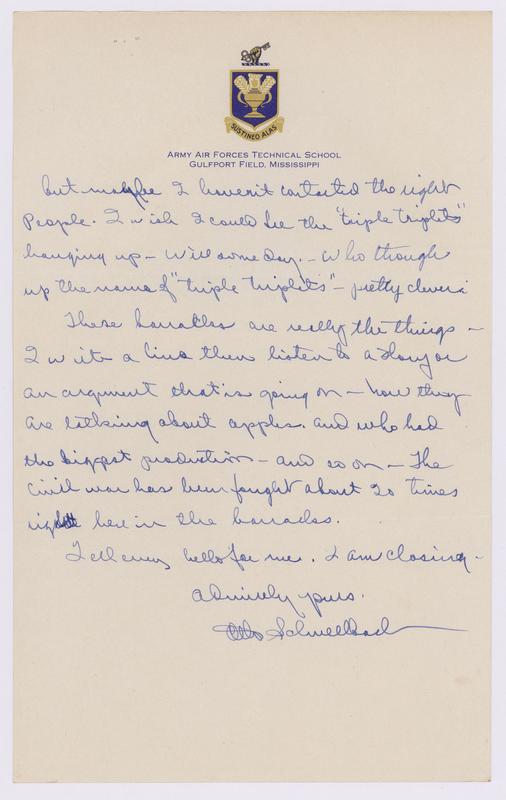 SUSTINEO ALAS
ARMY AIR FORCES TECHNICAL SCHOOL
GULFPORT FIELD, MISSISSIPPI
but maybe I haven't contacted the right
People. I wish I could see the "triple triplits"
hanging up – Will some day. – Who though
up the name of "triple triplits" – pretty clever.
These barracks are really the things –
I write a line then listen to a story or
an argument that is going on – now they
are talking about apples. and who had
the biggest production – and so on – The
Civil war has been fought about 20 times
right here in the barracks.
Tell hello for me. I am closing –
yours.
Otto Schwellbach